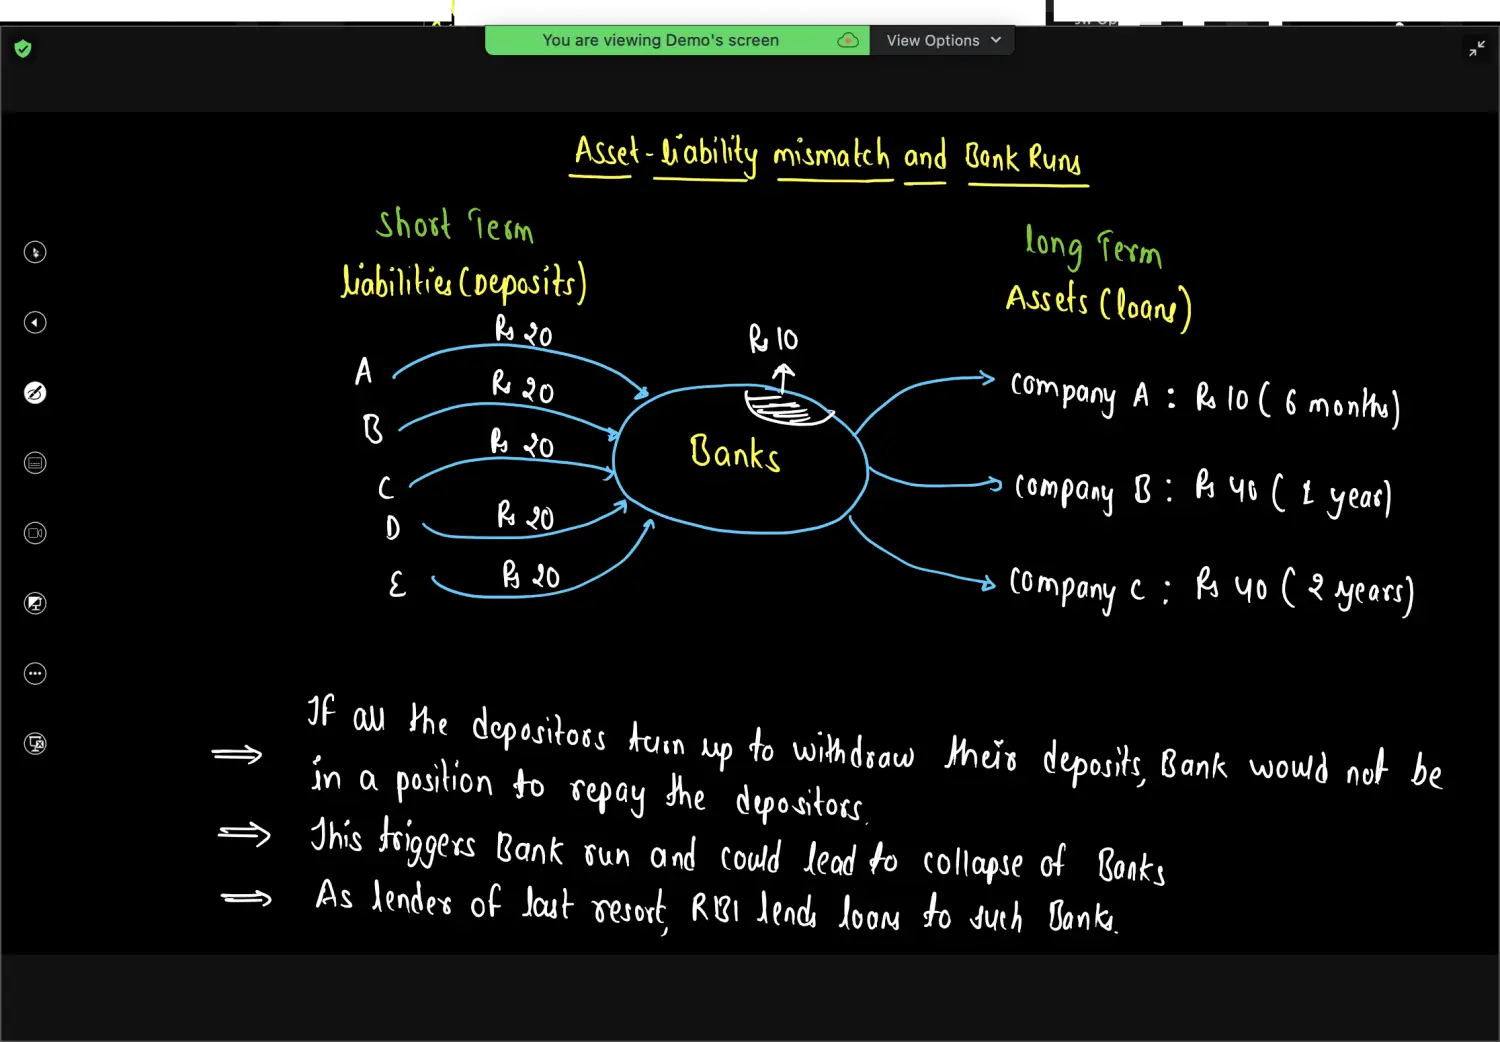 You are viewing Demo's screen
View Options
Asset-liability mismatch and Bank Runs
Short Term
liabilities (Deposits)
long Term
Assets (loans)
Rs 20
A
Rs 20
B
Rs 20
C
Rs 20
D
Rs 20
E
Rs 10
Banks
company A : Rs 10 ( 6 months)
company B : Rs 40 ( 1 year)
company C : Rs 40 ( 2 years)
If all the depositors turn up to withdraw their deposits, Bank would not be
in a position to repay the depositors.
This triggers Bank run and could lead to collapse of Banks
As lender of last resort, RBI lends loans to such Banks.